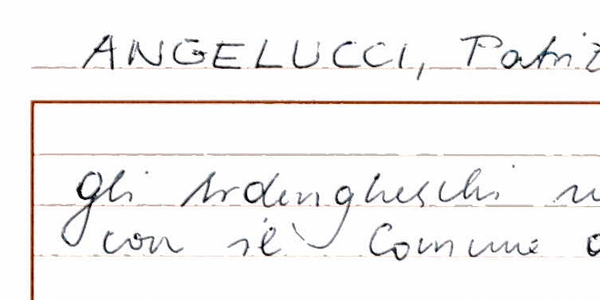 ANGELUCCI, Patriz
gli Ardengheschi
con il Comune